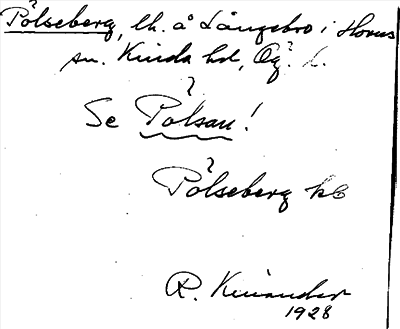 Pölseberg, lh. å Långebro i Horns
sn. Kinda hd, Ög. l.
Se Pölsan!
Pölseberg hC
R. Kinander
1928